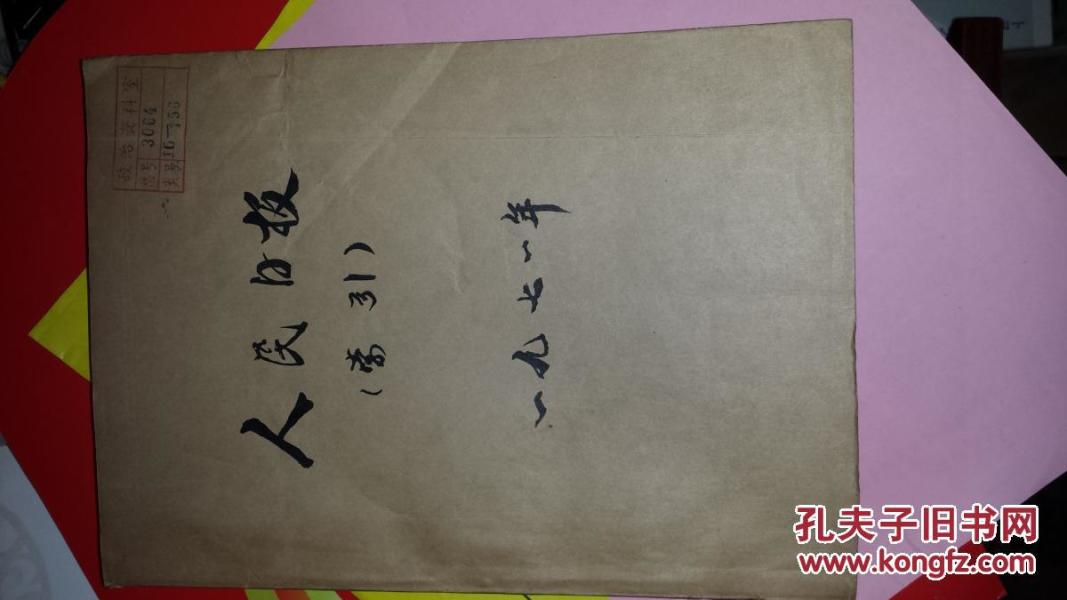 政治资料室
3064
人民日报
（索引）
一九七一年
孔夫子旧书网
www.kongfz.com